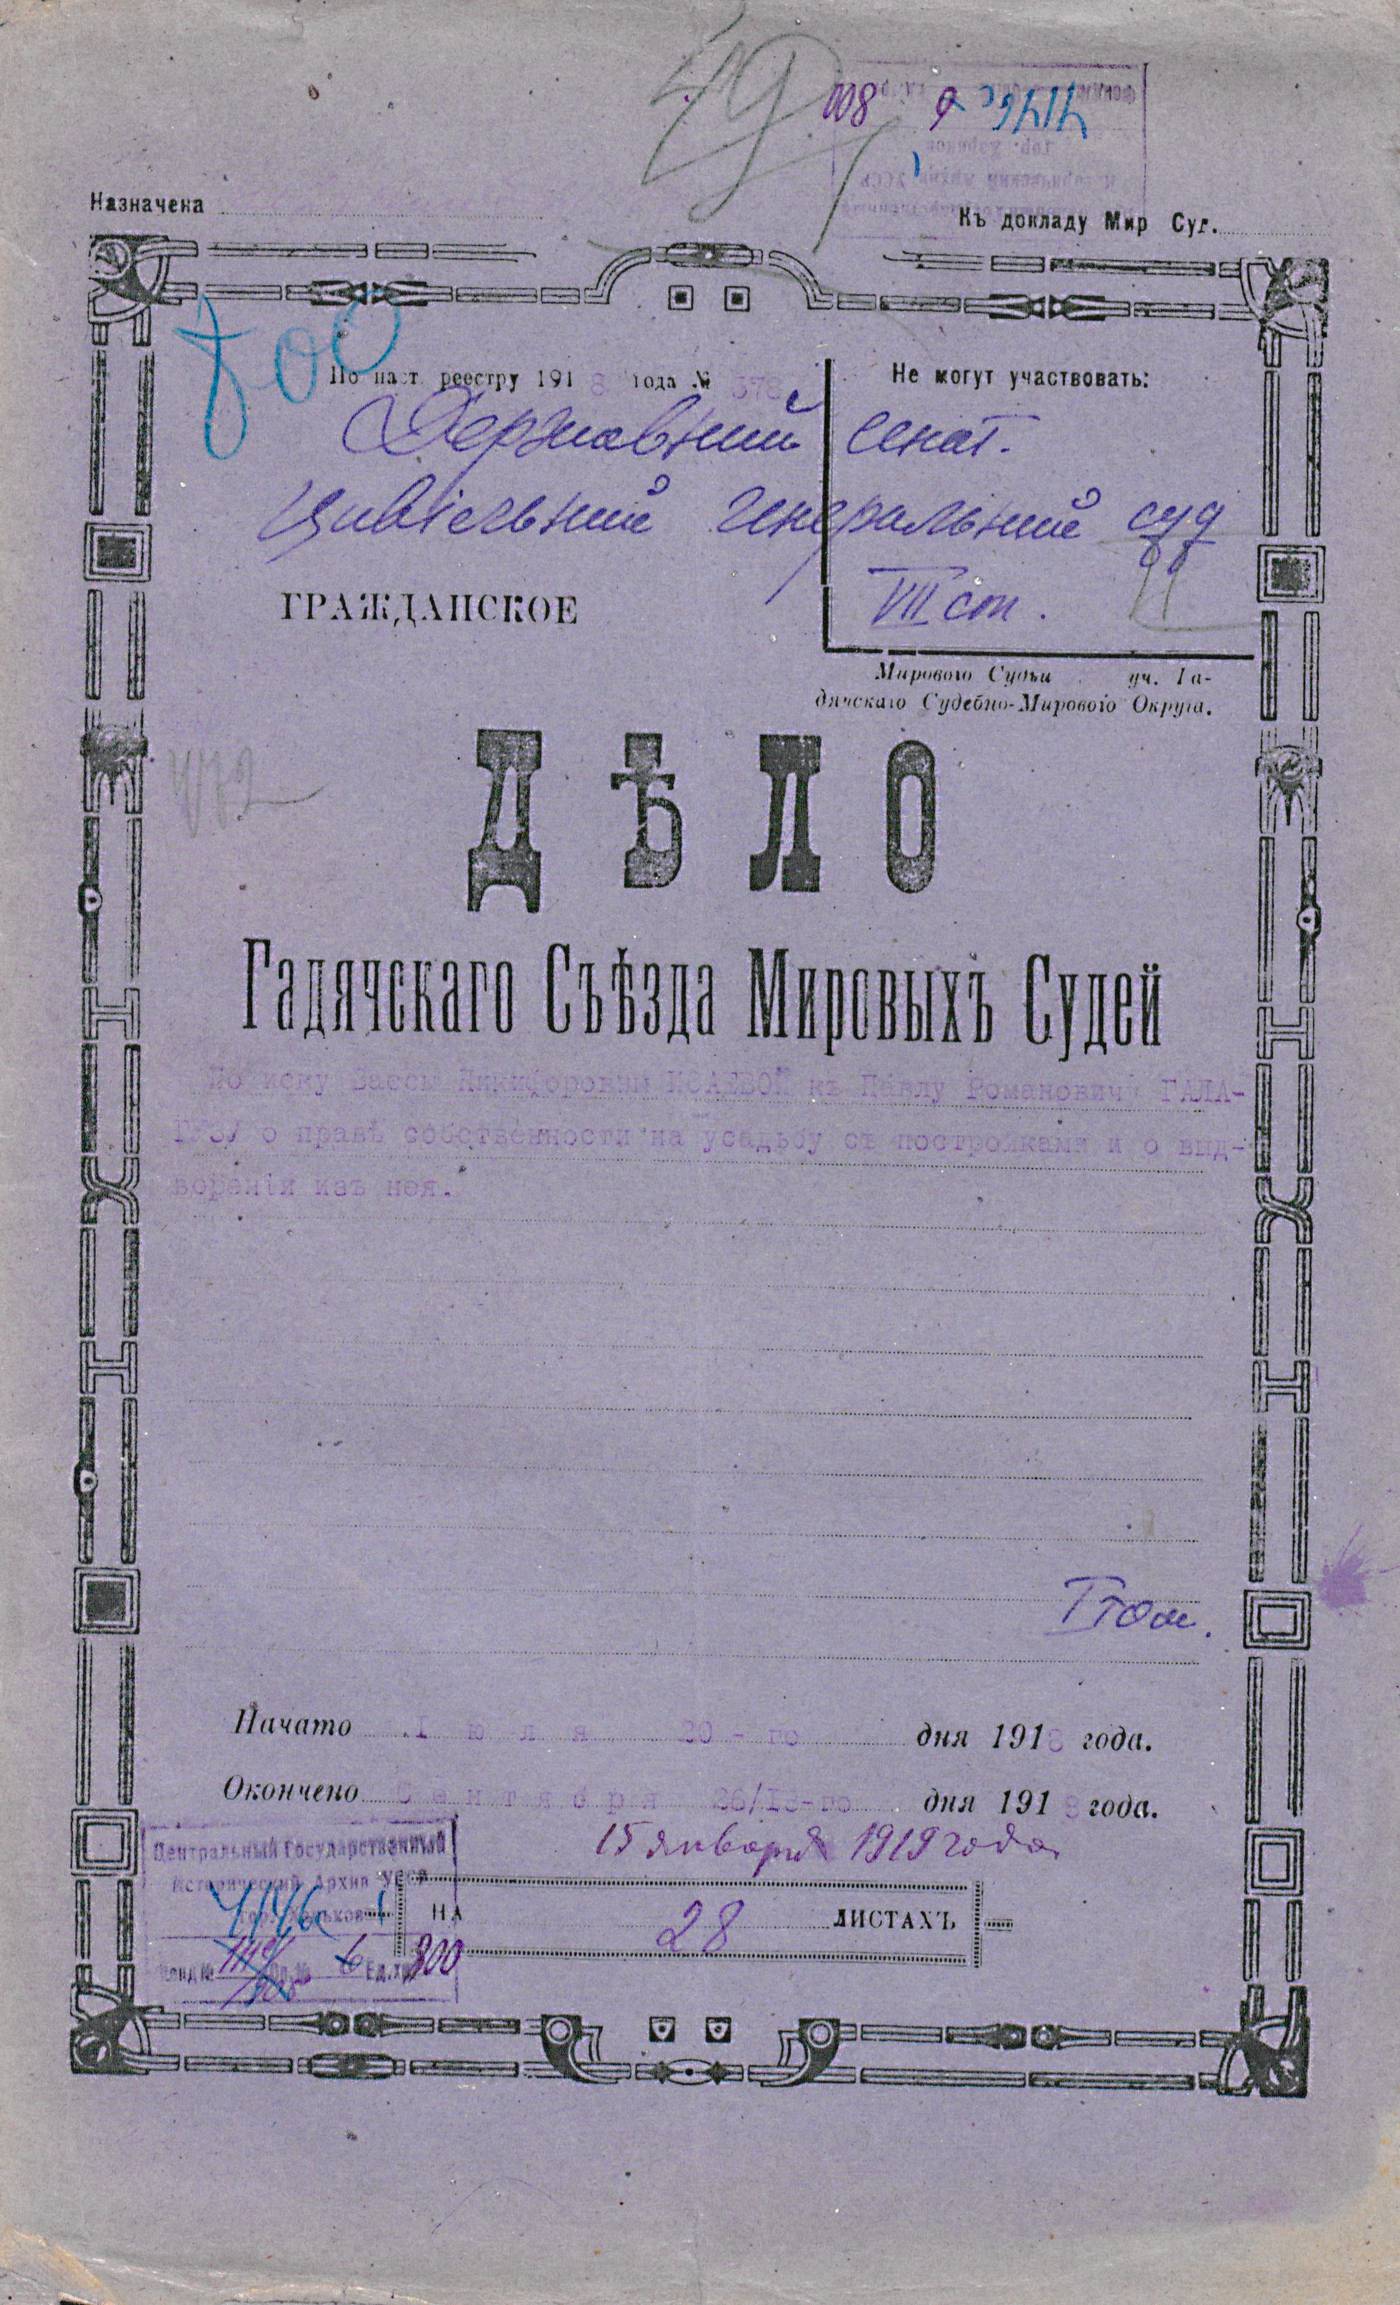 49
8000 6 7176с
Назначена
Къ докладу Мир Суд.
800
По наст. реестру 1918 года № 378
Не могут участвовать:
Державний Сенат.
Цивільний Генеральний суд
VIII ст.
ГРАЖДАНСКОЕ
Мирового Судьи уч. Га-
дячскаго Судебно-Мирового Округа.
472
ДѢЛО
Гадячскаго Съѣзда Мировыхъ Судей
По иску Вассы Никифоровны ИСАЕВОЙ къ Павлу Романовичу ГАЛА-
ГУЗУ о правѣ собственности на усадьбу съ постройками и о выд-
воренiи изъ нея.
I том.
Начато Iюля 20-го дня 1918 года.
Окончено Сентября 26/13-го дня 1918 года.
15 января 1919 года
Центральный Государственный
Исторический Архив УССР
гор. Харьков
НА 28 ЛИСТАХЪ
Фонд № Оп. № 6 Ед. хр. 800